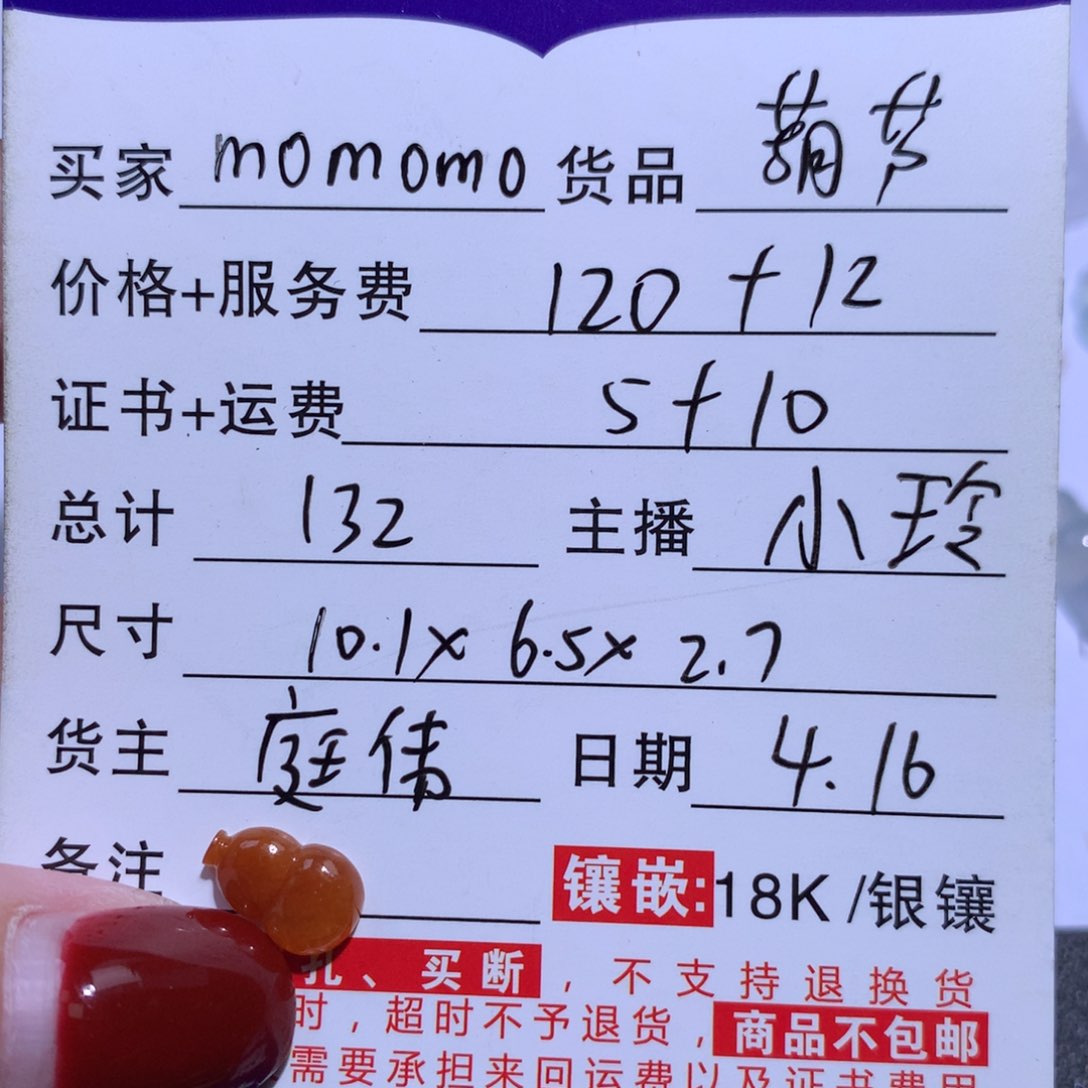 买家 momomo 货品 葫芦
价格+服务费 120 + 12
证书+运费 5+10
总计 132 主播 小玲
尺寸 10.1x 6.5x 2.7
货主 庭伟 日期 4.16
备注 镶嵌:18K /银镶
孔、买断，不支持退换货
时，超时不予退货，商品不包邮
需要承担来回运费以及证书费用